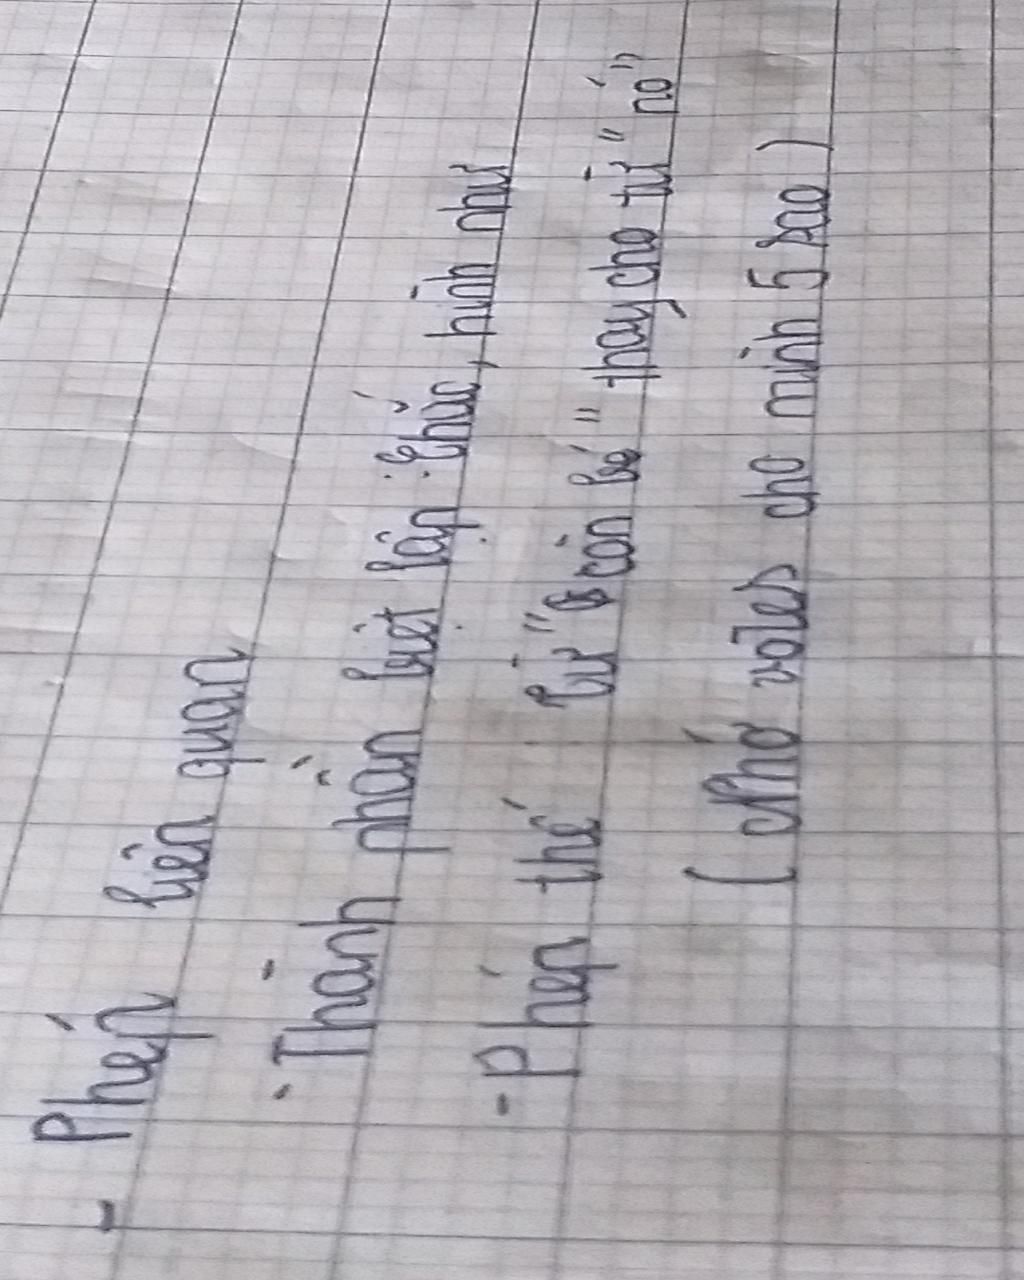 - Phép liên quan
- Thành phần biệt lập : Chắc, hình như
- Phép thế từ " còn bé " thay cho từ " nó "
( Nhớ votes cho mình 5 sao )